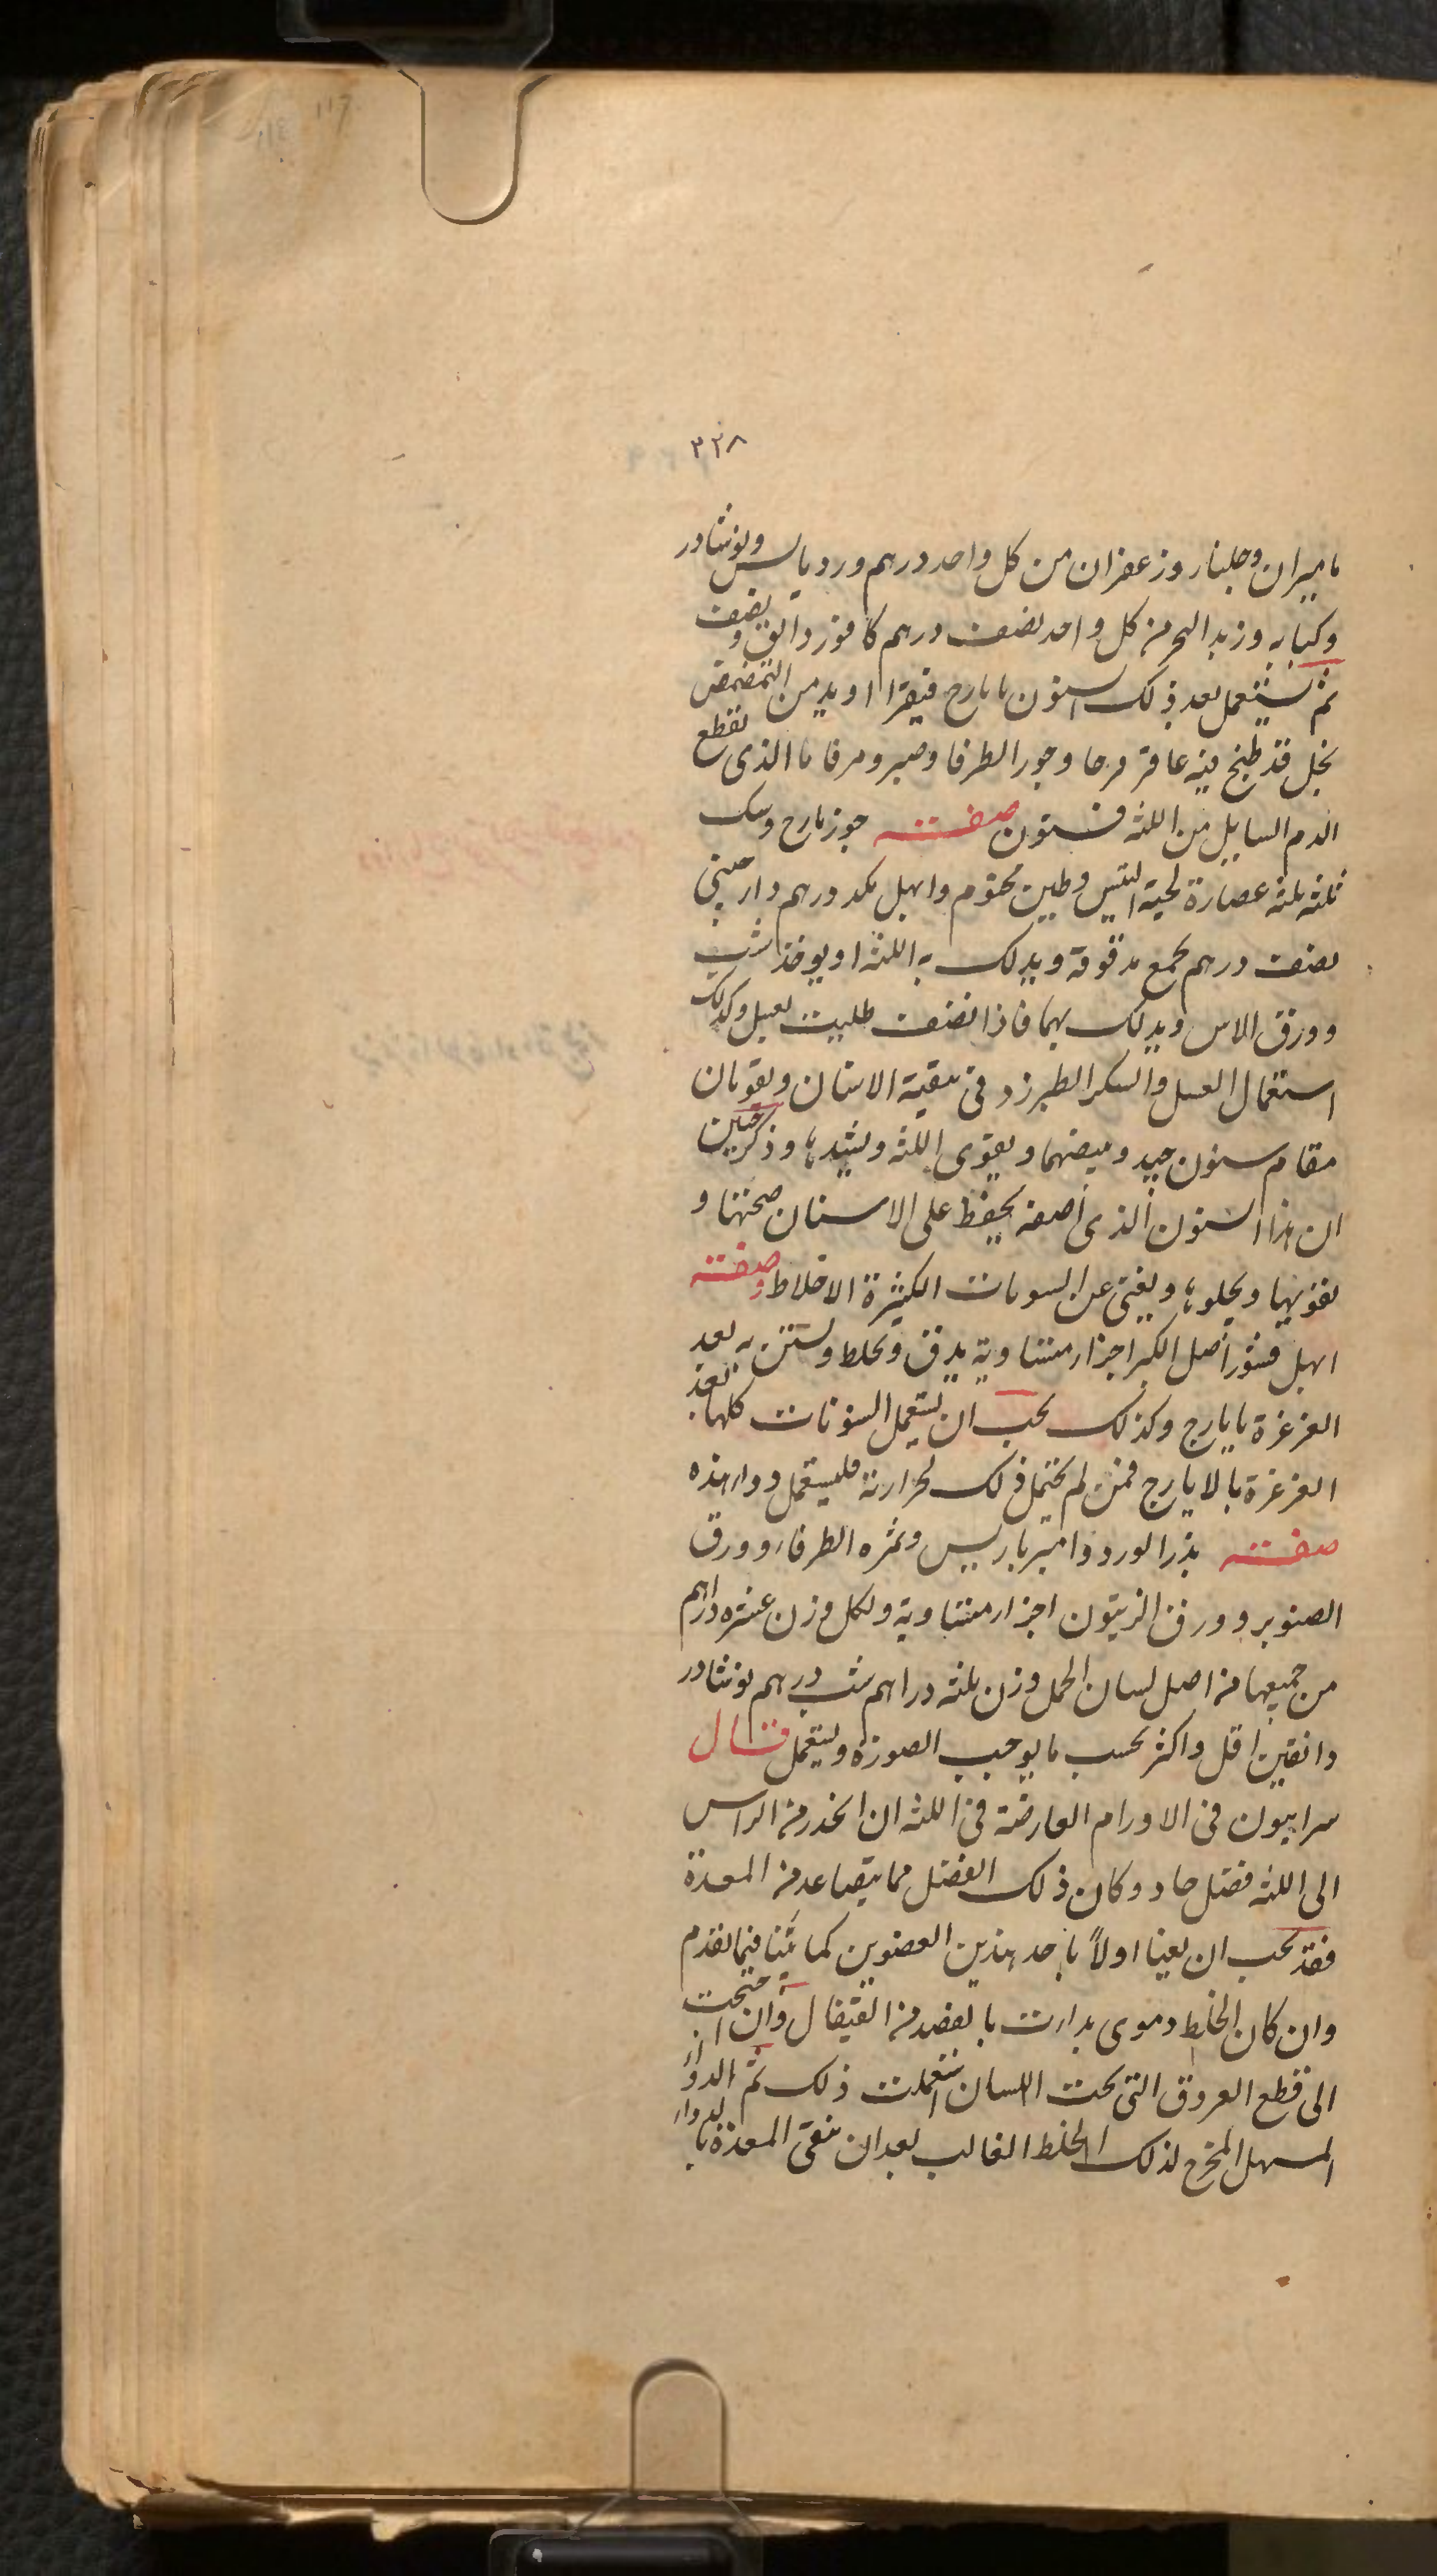 ٣٢٨
ماميران وجلنار وزعفران من كل واحد درهم ورد يابس ونوشادر
وكبابه وزبد البحر من كل واحد نصف درهم كافور دانق ونصف
ثم يستعمل بعد ذلك السنون بايارج فيقرا او يدمن التمضمض
بخل قد طبخ فيه عاقر قرحا وجوز الطرفا وصبر ومر فاما الذى يقطع
الدم السايل من اللثه فسنون صفته جوز مازج وسك
ثلثه ثلثه عصارة لحية التيس وطين مختوم وابهل بكد درهم دارصينى
نصف درهم يجمع مدقوقة ويدلك به اللثه او يوخذ شب
وورق الاس ويدلك بهما فاذا نضفت طليت بعسل وكذلك
استعمال العسل والسكر الطبرزد فى تنقية الاسنان ويقومان
مقام سنون جيد ويبيضهما ويقوى اللثه ويشدها وذكر حنين
ان هذا السنون الذى اصفه يحفظ على الاسنان صحتها و
يقويها ويجلوها ويغنى عن السونات الكثيرة الاخلاط وصفته
ابهل قشور اصل الكبر اجزاء متساوية يدق ويخلط ويستن به بعد
الغرغرة بايارج وكذلك يجب ان يستعمل السنونات كلها بعد
الغرغرة بالايارج فمن لم يحتمل ذلك لحرارته فليستعمل دواء هذه
صفته بذر الورد وامبرباريس وثمره الطرفاء وورق
الصنوبر وورق الزيتون اجزاء متساوية ولكل وزن عشره دراهم
من جميعها من اصل لسان الحمل وزن ثلثه دراهم شب درهم نوشادر
دانقين اقل واكثر بحسب ما يوجب الصورة ويستعمل قال
سرابيون فى الاورام العارضة فى اللثه ان انحدر من الراس
الى اللثه فضل حاد وكان ذلك الفضل مما يتصاعد من المعدة
فقد يجب ان يعنا اولاً باحد هذين العضوين كما بيّنا فيما تقدم
وان كان الخلط دموى بدات بالفصد من القيفال وان احتجت
الى قطع العروق التى تحت اللسان استعملت ذلك ثم الدواء
المسهل المخرج لذلك الخلط الغالب بعد ان تنقى المعدة بالدواء